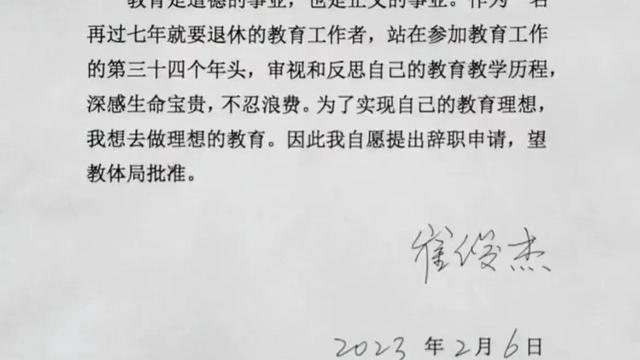 教育是道德的事业，也是正义的事业。作为一名
再过七年就要退休的教育工作者，站在参加教育工作
的第三十四个年头，审视和反思自己的教育教学历程，
深感生命宝贵，不忍浪费。为了实现自己的教育理想，
我想去做理想的教育。因此我自愿提出辞职申请，望
教体局批准。
崔俊杰
2023 年 2 月 6 日